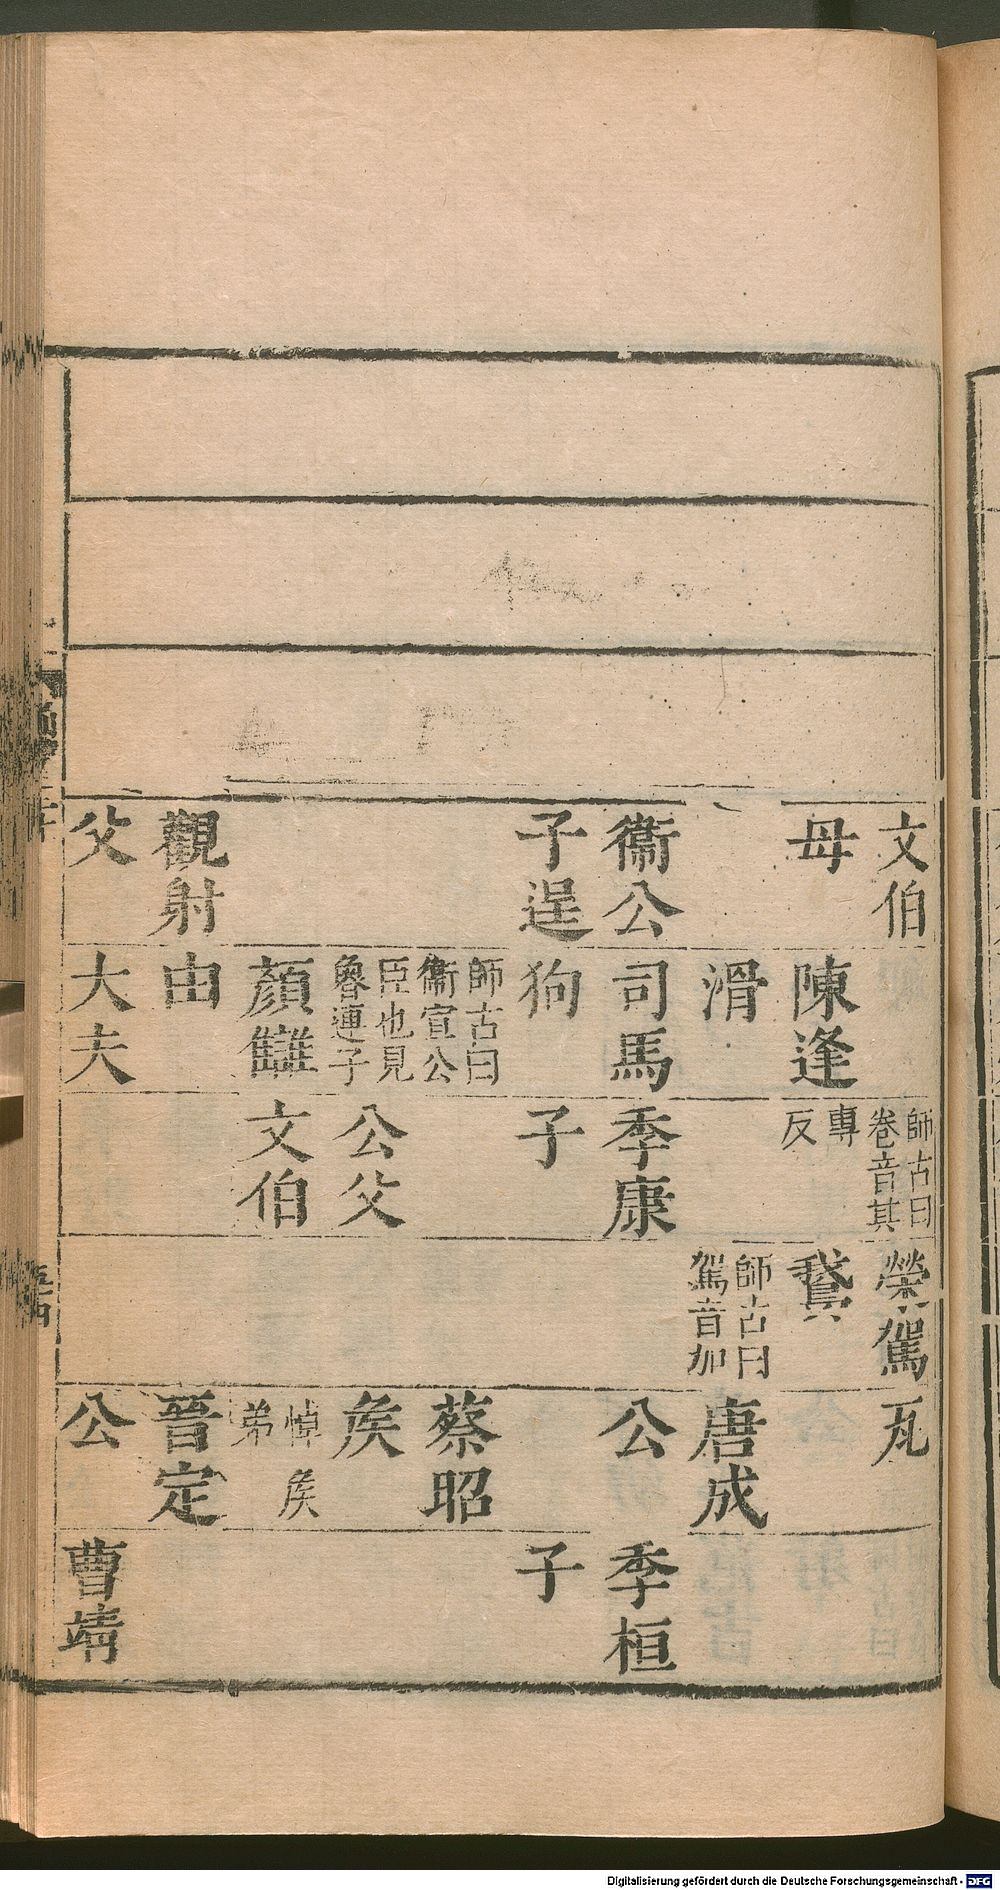 文伯
師古曰
卷音其
榮駕
瓦
母
陳逢
專
反
鵞
滑
師古曰
駕音加
唐成
衞公
司馬
季康
公
季桓
子逞
狗
子
子
師古曰
衞宣公
蔡昭
臣也見
魯連子
公父
矦
顏讎
文伯
悼矦
弟
觀射
由
晉定
父
大夫
公
曹靖
Digitalisierung gefördert durch die Deutsche Forschungsgemeinschaft - DFG